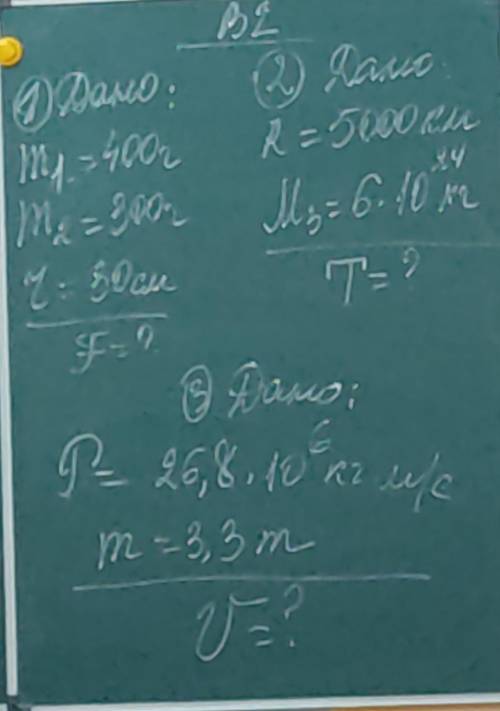 В2
① Дано:
m₁ = 400г
m₂ = 300г
r = 30см
F = ?
② Дано:
R = 5000 км
M₃ = 6·10²⁴ кг
T = ?
③ Дано:
P = 26,8·10⁶ кг м/с
m = 3,3 т
V = ?